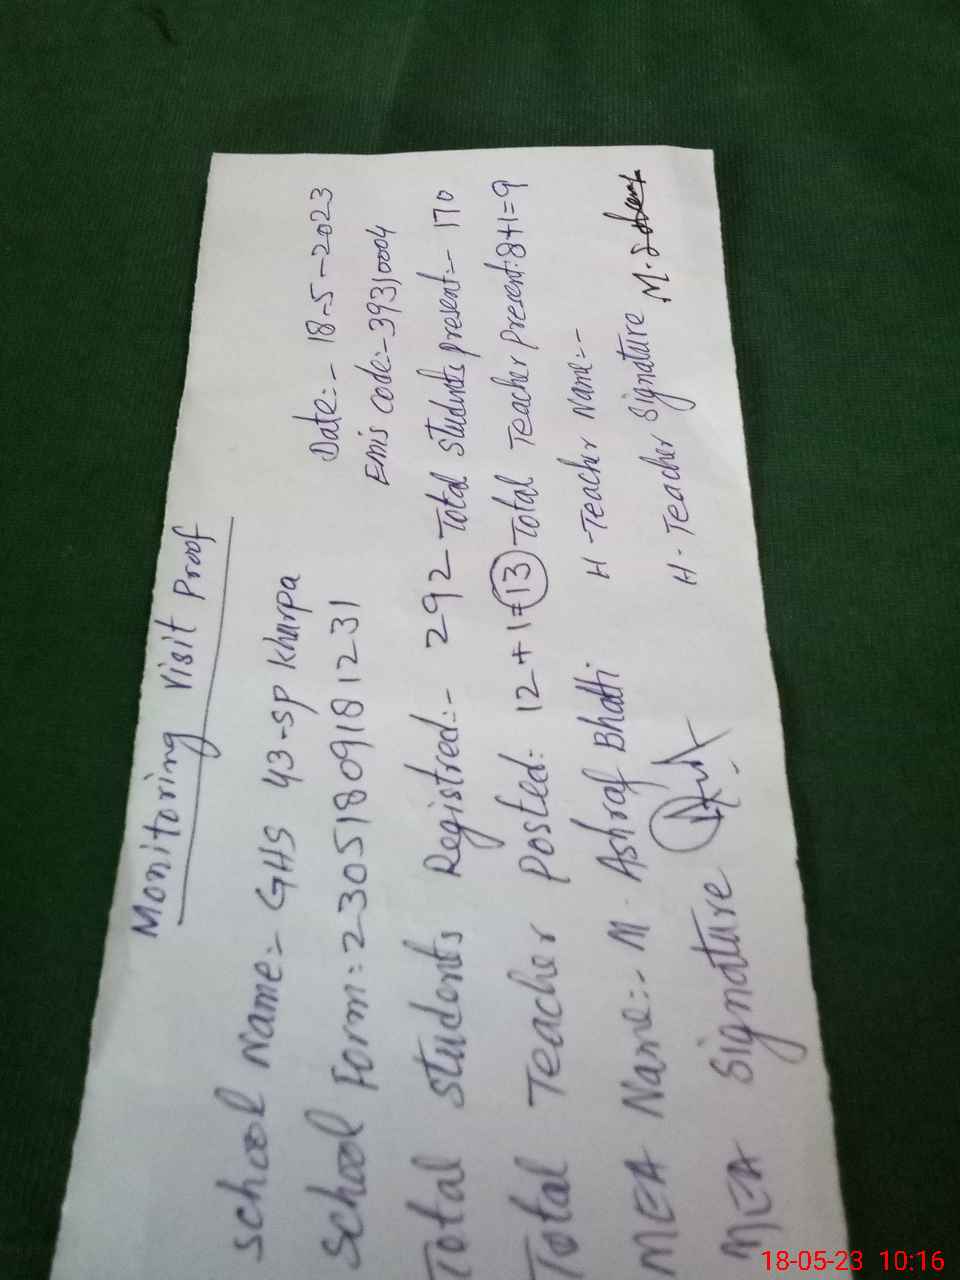 Monitoring Visit Proof
School Name:- GHS 43-SP Kharpa Date:- 18-5-2023
School Form:- 230518091812 31 Emis code:- 39310004
Total Students Registred:- 292 - Total Students present:- 170
Total Teacher Posted: 12+1=13 Total Teacher Present: 8+1=9
MEA Name:- M. Ashraf Bhatti H-Teacher Name:-
MEA Signature H-Teacher Signature M.
18-05-23 10:16